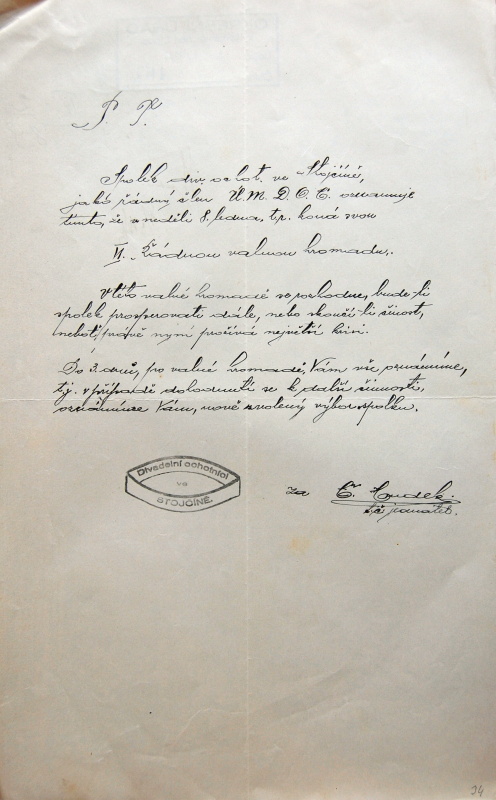 P. T.
Spolek div. ochot. ve Stojčíně,
jako řádný člen Ú. M. D. O. Č. oznamuje
tímto, že v neděli 8. ledna, t.r. koná svou
VI. Řádnou valnou hromadu.
V této valné hromadě se rozhodne, bude-li
spolek prosperovati dále, nebo skončí-li činost,
neboť právě nyní prožívá největší krisi.
Do 3. dnů, po valné hromadě, Vám vše oznámíme,
tj. v případě dohodnutí se k další činnosti,
oznámíme Vám, nově zvolený výbor spolku.
Divadelní ochotníci
ve
STOJČÍNĚ.
za Č. Loudek.
jednatel.
24